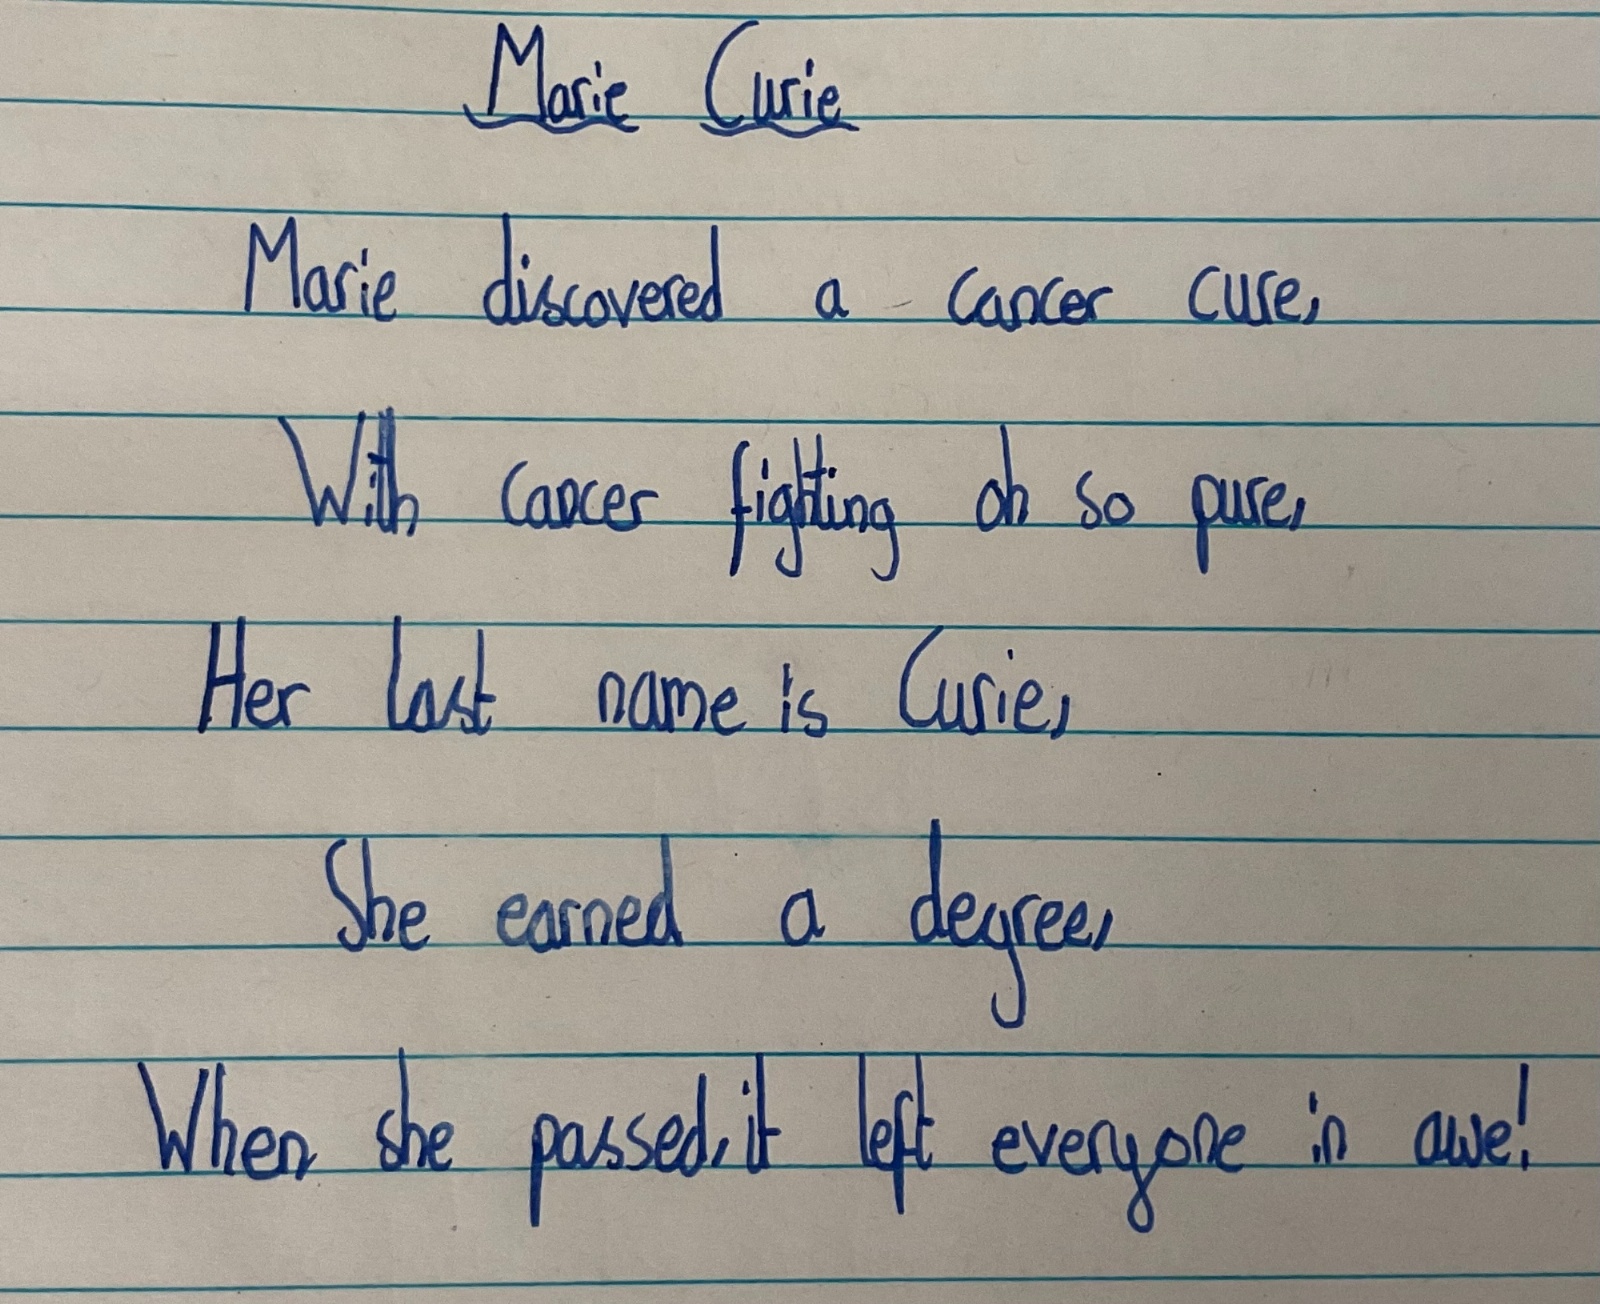 Marie Curie
Marie discovered a cancer cure,
With cancer fighting oh so pure,
Her last name is Curie,
She earned a degree,
When she passed, it left everyone in awe!